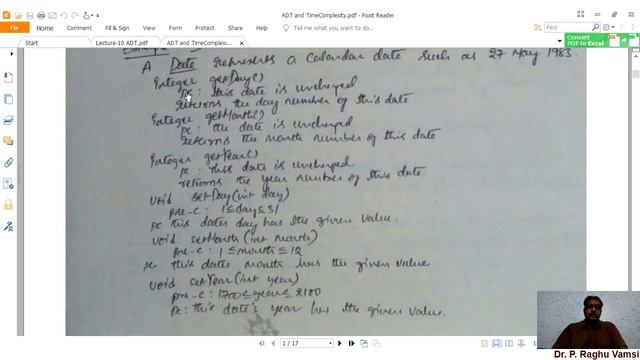 ADT and TimeComplexity.pdf - Foxit Reader
File
Start
Lecture-10 ADT.pdf
ADT and TimeComplexi...
Convert
PDF to Excel
A Date represents a calandar date such as 27 May 1983.
Integer getDay()
pc: this date is unchanged
returns the day number of this date
Integer getMonth()
pc: the date is unchanged
returns the month number of this date
Integer getYear()
pc: this date is unchanged
returns the year number of this date
void setDay(int day)
pre-c: 1≤day≤31
pc this dates day has the given value.
void setMonth(int month)
pre-c: 1≤month≤12
pc this dates month has the given value
void setYear(int year)
pre-c: 1700≤year≤2100
pc: this date's year has the given value.
1 / 17
Dr. P. Raghu Vamsi